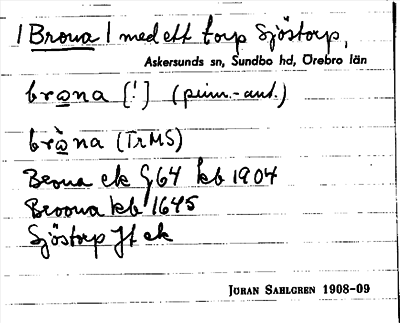 / Brona / med ett torp Sjöstorp,
Askersunds sn, Sundbo hd, Örebro län
brona [!] (prim.-ant.)
bròna (TrMS)
Brona ek G64 kb 1904
Broona kb 1645
Sjöstorp Jt ek
JÖRAN SAHLGREN 1908-09